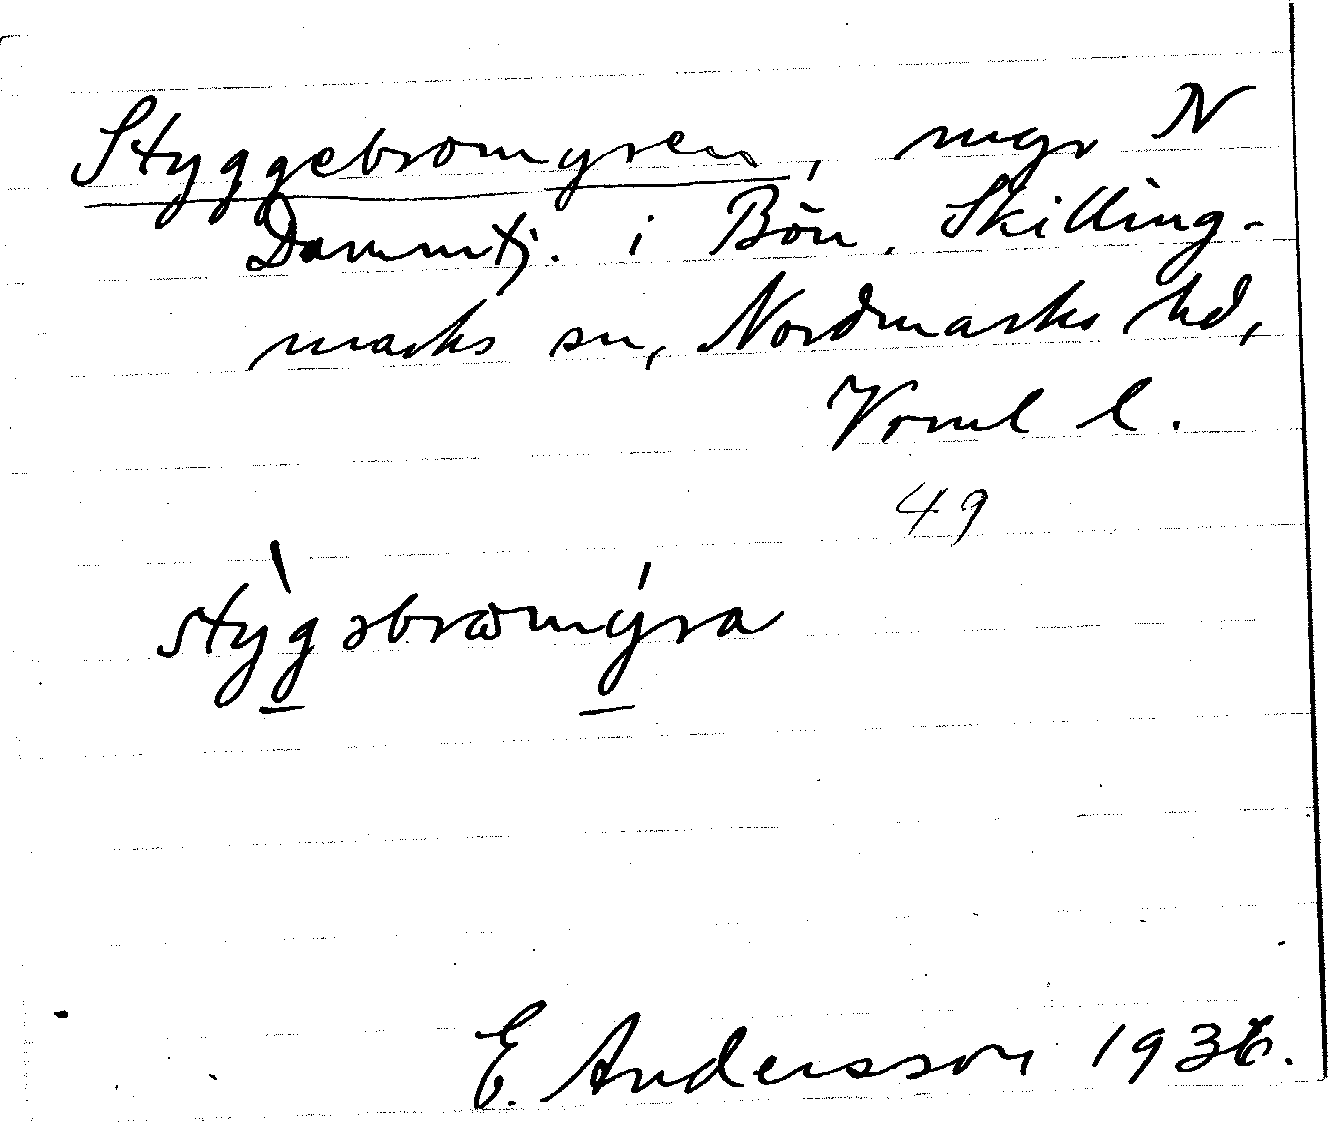 Styggebromyren, mgr N
Dammtj. i Bön, Skilling-
marks sn, Nordmarks hd,
Vrml l.
49
stỳgəbrωmýra
E. Andersson 1936.